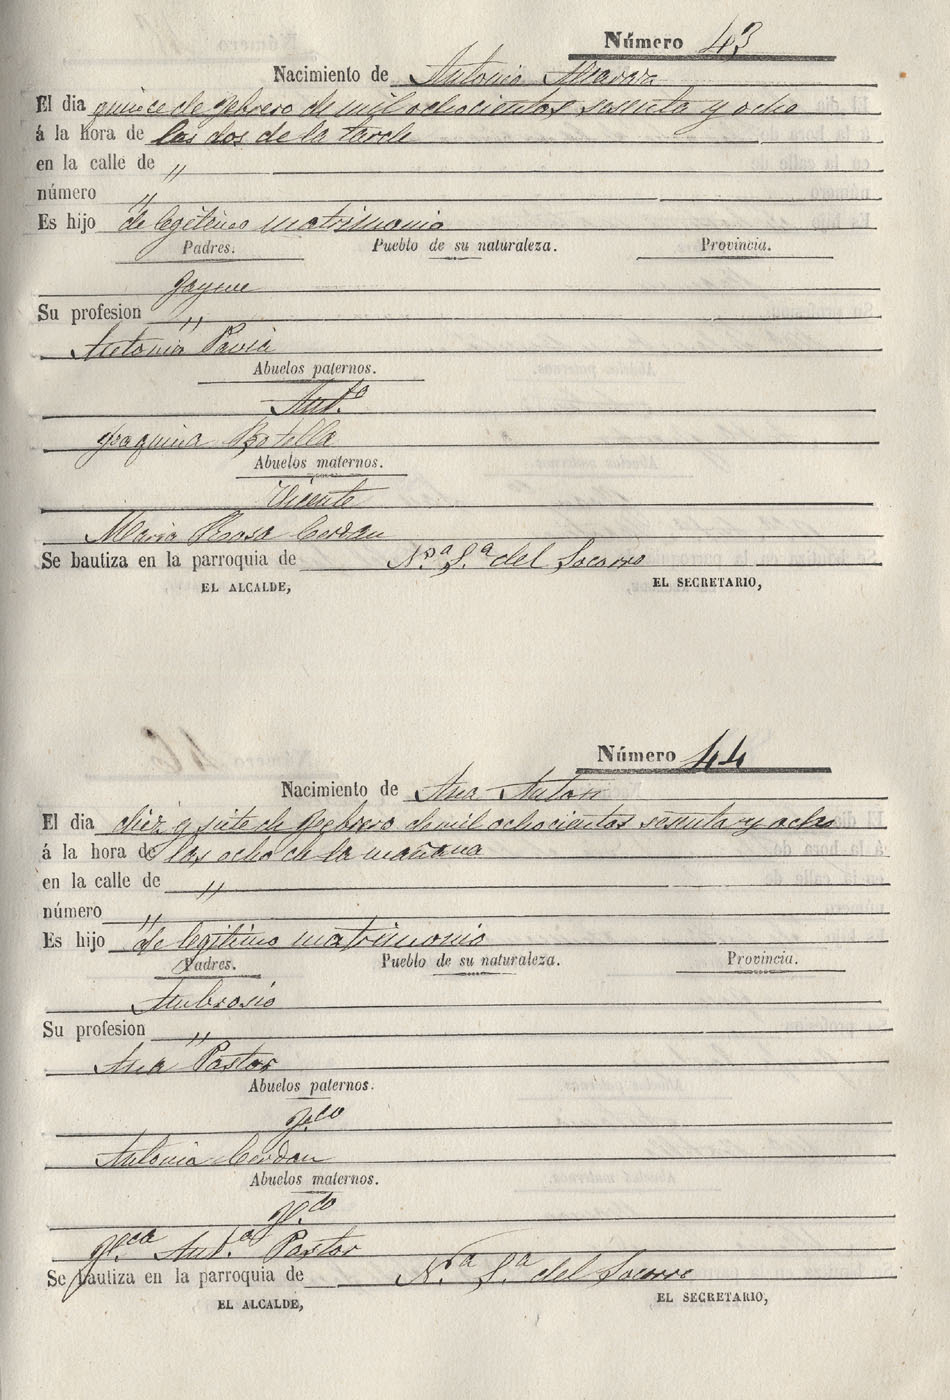 Número 43
Nacimiento de Antonio Alcaraz
El dia quince de febrero de mil ochocientos sesenta y ocho
á la hora de las dos de la tarde
en la calle de "
número "
Es hijo de legitimo matrimonio
Padres. Pueblo de su naturaleza. Provincia.
Jayme
Su profesion "
Antonia Pavia
Abuelos paternos.
Ant.o
Joaquina Botella
Abuelos maternos.
Vicente
Maria Rosa Cerdan
Se bautiza en la parroquia de N.ra S.a del Socorro
EL ALCALDE, EL SECRETARIO,
Número 44
Nacimiento de Ana Anton
El dia diez y siete de febrero de mil ochocientos sesenta y ocho
á la hora de las ocho de la mañana
en la calle de "
número "
Es hijo de legitimo matrimonio
Padres. Pueblo de su naturaleza. Provincia.
Ambrosio
Su profesion "
Ana Pastor
Abuelos paternos.
Fco
Antonia Cerdan
Abuelos maternos.
Fco
Fca Ant.a Pastor
Se bautiza en la parroquia de N.ra S.a del Socorro
EL ALCALDE, EL SECRETARIO,